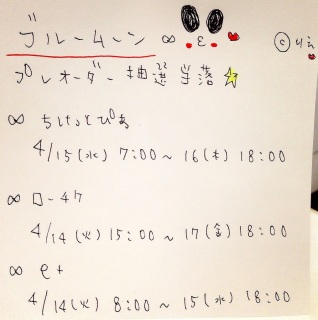 ブルームーン ∞
© りぶ
プレオーダー 抽選当落☆
∞ ちけっとぴあ
4/15(水) 7:00~16(木) 18:00
∞ ロ-47
4/14(火) 15:00~17(金) 18:00
∞ e+
4/14(火) 8:00~15(水) 18:00